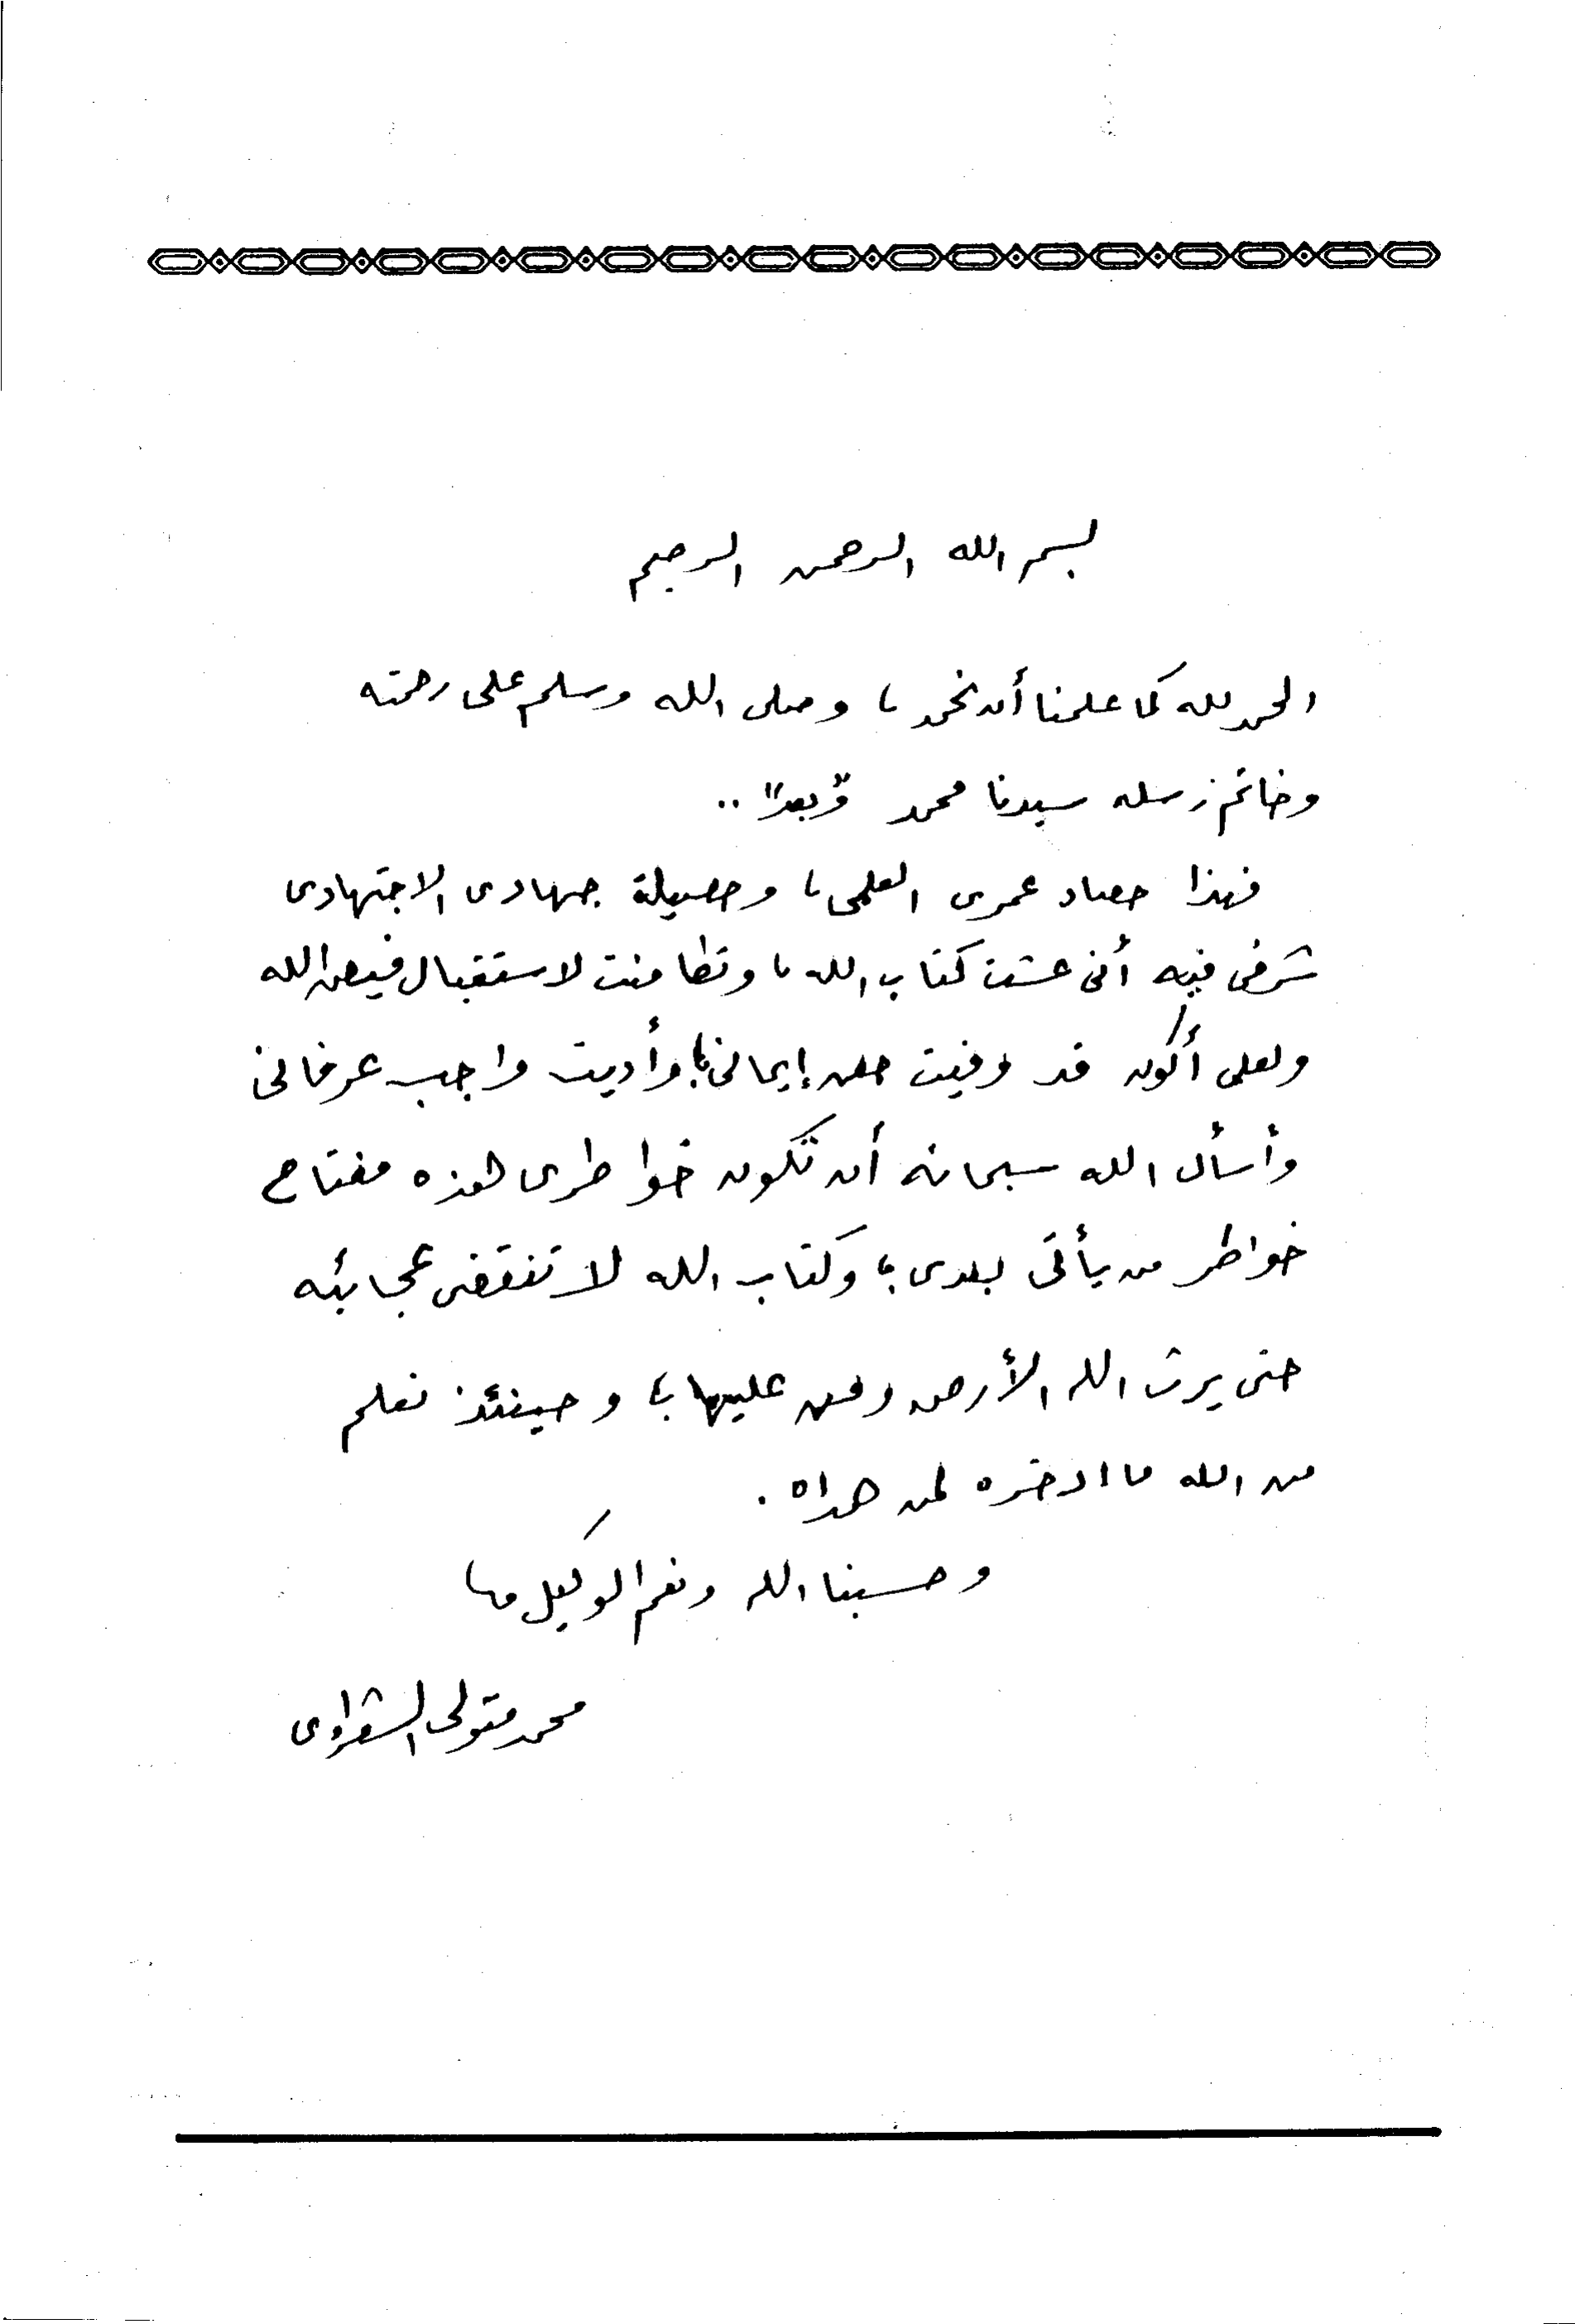 بسم الله الرحمن الرحيم
الحمد لله كما علمنا أن نحمد ، وصلى الله وسلم على رحمته
وخاتم رسله سيدنا محمد "وبعد" ..
فهذا حصاد عمرى العلمى ، وحصيلة جهادى الاجتهادى
شرفى فيه أنى عشت كتاب الله ، وتطامنت لاستقبال فيض الله
ولعلى أكون قد وفيت حق إيمانى ؛ وأديت واجب عرفانى
وأسأل الله سبحانه أن تكون خواطرى هذه مفتاح
خواطر من يأتى بعدى ؛ وكتاب الله لا تنقضى عجائبه
حتى يرث الله الأرض ومن عليها ؛ وحينئذ نعلم
من الله ما ادخره لمن هداه .
وحسبنا الله ونعم الوكيل
محمد متولى الشعراوى